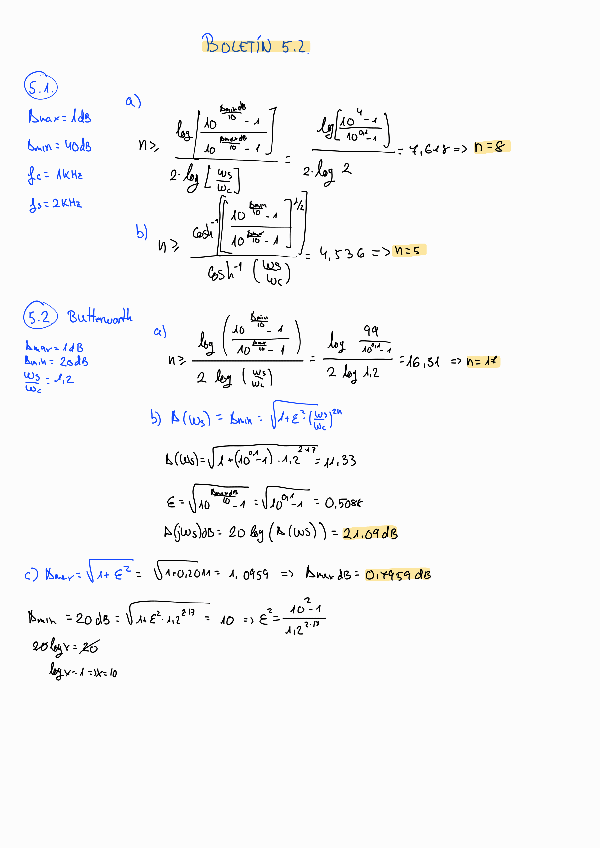 BOLETÍN 5.2.
5.1.
Amax = 1dB
Amin = 40dB
fc = 1KHz
fs = 2KHz
a) n ≥ log[(10^(AmindB/10) - 1)/(10^(AmaxdB/10) - 1)] / (2·log[ws/wc]) = log[(10^4 - 1)/(10^0,1 - 1)] / (2·log 2) = 7,618 => n = 8
b) n ≥ cosh^-1[[(10^(Amin/10) - 1)/(10^(Amax/10) - 1)]^1/2] / cosh^-1(ws/wc) = 4,536 => n = 5
5.2. Butterworth
Amax = 1dB
Amin = 20dB
ws/wc = 1,2
a) n ≥ log((10^(Amin/10) - 1)/(10^(Amax/10) - 1)) / (2 log(ws/wc)) = log (99/(10^0,1 - 1)) / (2 log 1,2) = 16,31 => n = 17
b) A(ws) = Amin = √(1 + ε²·(ws/wc)^2n)
A(ws) = √(1 + (10^0,1 - 1)·1,2^2·17) = 11,33
ε = √(10^(AmaxdB/10) - 1) = √(10^0,1 - 1) = 0,508
A(jws)dB = 20 log(A(ws)) = 21.09dB
c) Amax = √(1 + ε²) = √(1+0,2011) = 1,0959 => AmaxdB = 0,7959 dB
Amin = 20dB = √(1 + ε²·1,2^2·17) = 10 => ε² = (10² - 1)/(1,2^2·17)
20 log x = 20
log x = 1 => x = 10